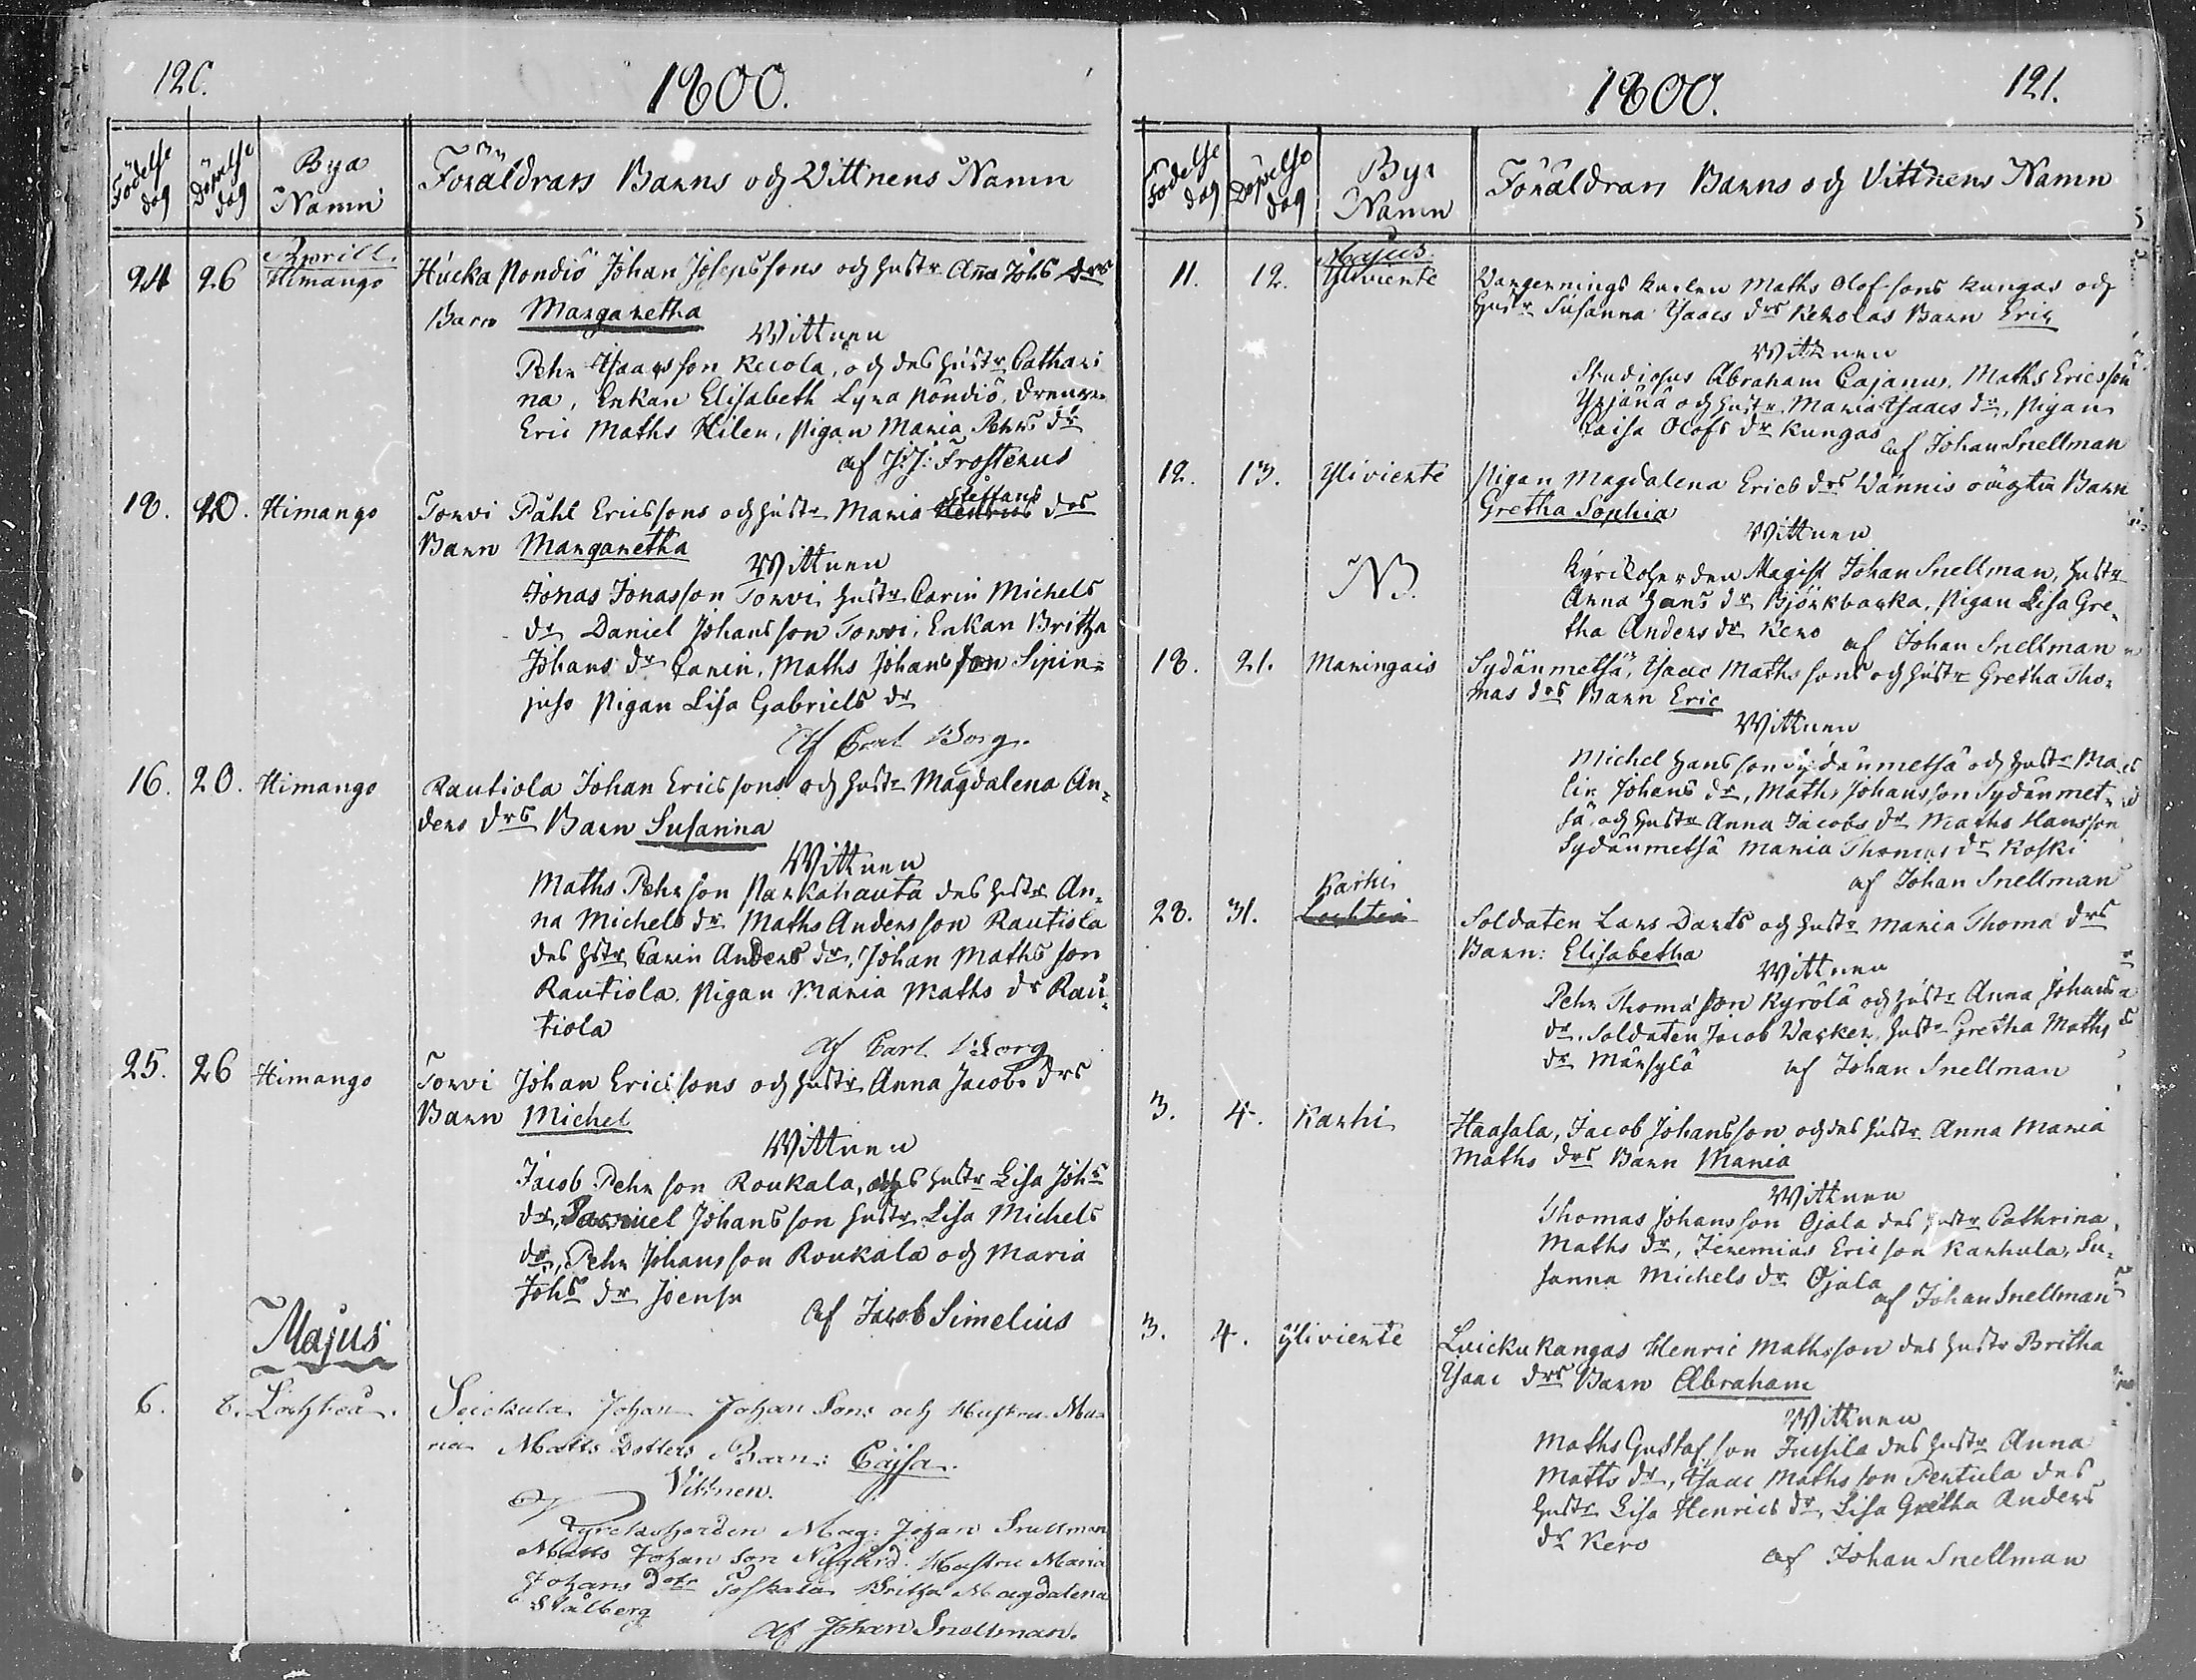 120.
1800.
Födelse dag
Döpelse dag
Bya Namn
Föräldrars Barns och Wittnens Namn
Aprill.
24 26 Himango Hucka Pöndiö Johan Josepssons och hustr Anna Johs drs
Barn Margaretha
Wittnen
Pehr Isaacsson Recola, och des hustr Cathari
na, Enkan Elisabeth Lyra Pöndiö, Drengen
Eric Maths Hilen, Pigan Maria Pehrs dr
af J: J: Frosterus
18. 20. Himango Torvi Påhl Ericssons och hustr Maria Steffans drs
Barn Margaretha
Wittnen
Jonas Jonasson Torvi hustr Carin Michels
dr Daniel Johansson Torvi, Enkan Britha
Johans dr Carin, Maths Johansson Sipin=
juso Pigan Lisa Gabriels dr
Af Carl Borg.
16. 20. Himango Rautiola Johan Ericssons och hustr Magdalena An=
ders drs Barn Susanna
Wittnen
Maths Pehrson Parkahauta des hustr An=
na Michels dr Maths Andersson Rautiola
des hstr Carin Anders dr, Johan Mathsson
Rautiola. Pigan Maria Maths dr Rau=
tiola
af Carl Borg
25. 26 Himango Torvi Johan Ericssons och hustr Anna Jacobs drs
Barn Michel
Wittnen
Jacob Pehrson Roukala, des hustr Lisa Johs
dr, Samuel Johansson hustr Lisa Michels
dr, Pehr Johansson Roukala och Maria
Johs dr Joensu
af Jacob Simelius
Majus
6. 8. Lochteå. Seickula Johan Johan Sons och Hustru Ma=
ria Matts Dotters Barn: Cajsa.
Vittnen.
Kyrckoherden Mag: Johan Snellman
Matts Johan Son Nygård. Hustru Maria
Johans Dotr Poskela Britha Magdalena
Stålberg
af Johan Snellman.
1800.
121.
Födelse dag
Döpelse dag
Bya Namn
Föräldrars Barns och Vittnens Namn
Majus.
11. 12. Yliviente Wargerings karlen Maths Olofsons Kangas och
hustr Susanna Isaacs drs Kerolas Barn Eric
Wittnen
Studiosus Abraham Cajanus. Maths Ericsson
Yrjänä och hustr Maria Isaacs dr, Pigan
Caisa Olofs dr Kungas
af Johan Snellman
12. 13. Yliviente Pigan Magdalena Erics drs Wännis oäghta Barn
Gretha Sophia
Wittnen
NB.
Kyrckoherden Magist Johan Snellman, hustr
Anna Hans dr Björkbacka, Pigan Lisa Gre=
tha Anders dr Kero
af Johan Snellman
18. 21. Maringais Sydänmetsä, Isaac Mathssons och hustr Gretha Tho=
mas drs Barn Eric
Wittnen
Michel Hansson Sydänmetsä och hustr Ma
lin Johans dr, Maths Johansson Sydänmet=
sä, och hustr Anna Jacobs dr Maths Hansson
Sydänmetsä Maria Thomas dr Koski
af Johan Snellman
Karhi
28. 31. Lochteå Soldaten Lars Darts och hustr Maria Thoma drs
Barn: Elisabetha
Wittnen
Pehr Thomasson Kyrölä och hustr Anna Johans
dr. Soldaten Jacob Wacker, hustr Gretha Maths
dr Märsylä
af Johan Snellman
3. 4. Karhi Haasala, Jacob Johansson och des hustr Anna Maria
Maths drs Barn Maria
Wittnen
Thomas Johansson Ojala des hustr Cathrina
Maths dr, Jeremias Ericson Karhula, Su=
sanna Michels dr Ojala
af Johan Snellman
3. 4. Yliviente Luickukangas Henric Mathsson des hustr Britha
Isaac drs Barn Abraham
Wittnen
Maths Gustafson Jussila des hustr Anna
Matts dr, Isaac Mathsson Pentula des
hustr Lisa Henrics dr, Lisa Gretha Anders
dr Kero
af Johan Snellman